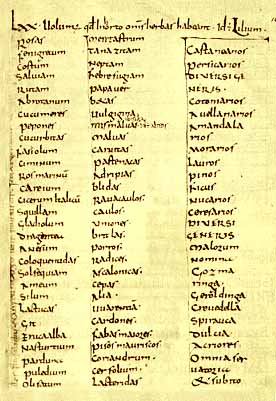 LXX. Volumus quod in horto omnes herbas habeant. Id: Lilium.
Rosas
Fenigrecum
Costum
Salviam
Rutam
Abrotanum
Cucumeres
Pepones
Cucurbitas
Fasiolum
Ciminum
Rosmarinum
Careium
Cicerum italicum
Squillam
Gladiolum
Dragantea
Anesum
Coloquentidas
Solsequiam
Ameum
Silum
Lactucas
Git
Eruca alba
Nasturtium
Parduna
Puledium
Olisatum
mentastrum
Tanazitam
Neptam
febrefugiam
papaver
betas
Vulgigina
mismalvas
malvas
Carvitas
pastenacas
Adripias
blidas
Ravacaulos
Caulos.
Uniones.
britlas.
porros.
Radices.
Ascalonicas.
Cepas.
Alia.
Warentiam.
Cardones.
fabas maiores.
pisos mauriscos.
Coriandrum.
Cerfolium.
Lacteridas
Castanarios
Persicarios
DIVERSI GE
NERIS.
Cotoniarios
Avellanarios
Amandala
rios
Morarios
Lauros
Pinos
Ficus
Nucarios
Ceresarios
DIVERSI
GENERIS
malorum
Nomina
Gozma
ringa.
Geroldinga
Crevedella
Spirauca
Dulcia
Acriores
Omnia ser
vatoria
Et subito